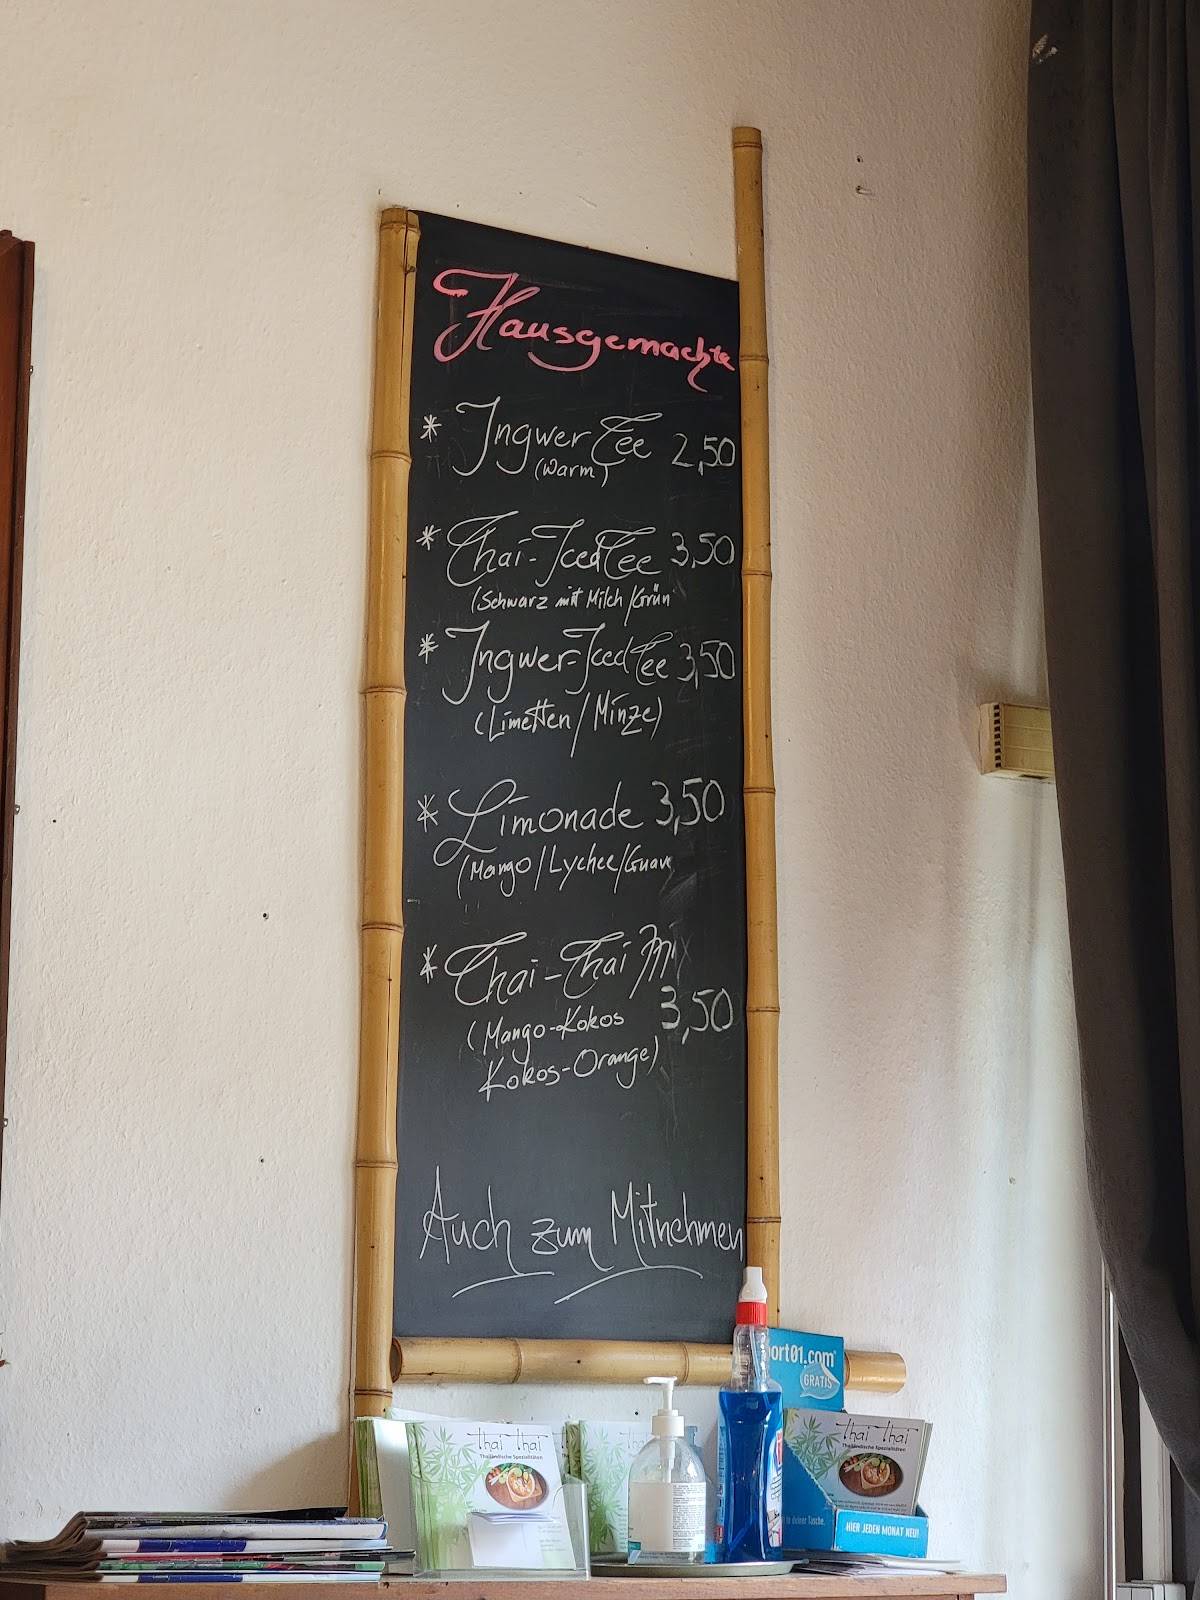 Hausgemachte
* Ingwer Tee 2,50
(Warm)
* Thai-Iced Tee 3,50
(Schwarz mit Milch/Grün
* Ingwer-Iced Tee 3,50
(Limetten/Minze)
* Limonade 3,50
(Mango/Lychee/Guave
* Thai-Thai Mix
(Mango-Kokos 3,50
Kokos-Orange)
Auch zum Mitnehmen
port01.com
GRATIS
Thai Thai
Thailändische Spezialitäten
Thai Thai
Thailändische Spezialitäten
in deiner Tasche.
HIER JEDEN MONAT NEU!